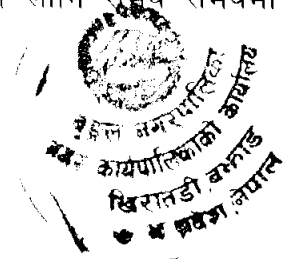 लागि
बुङ्गल नगरपालिका
नगर कार्यपालिकाको कार्यालय
खिरातडी, बझाङ
प्रदेश, नेपाल